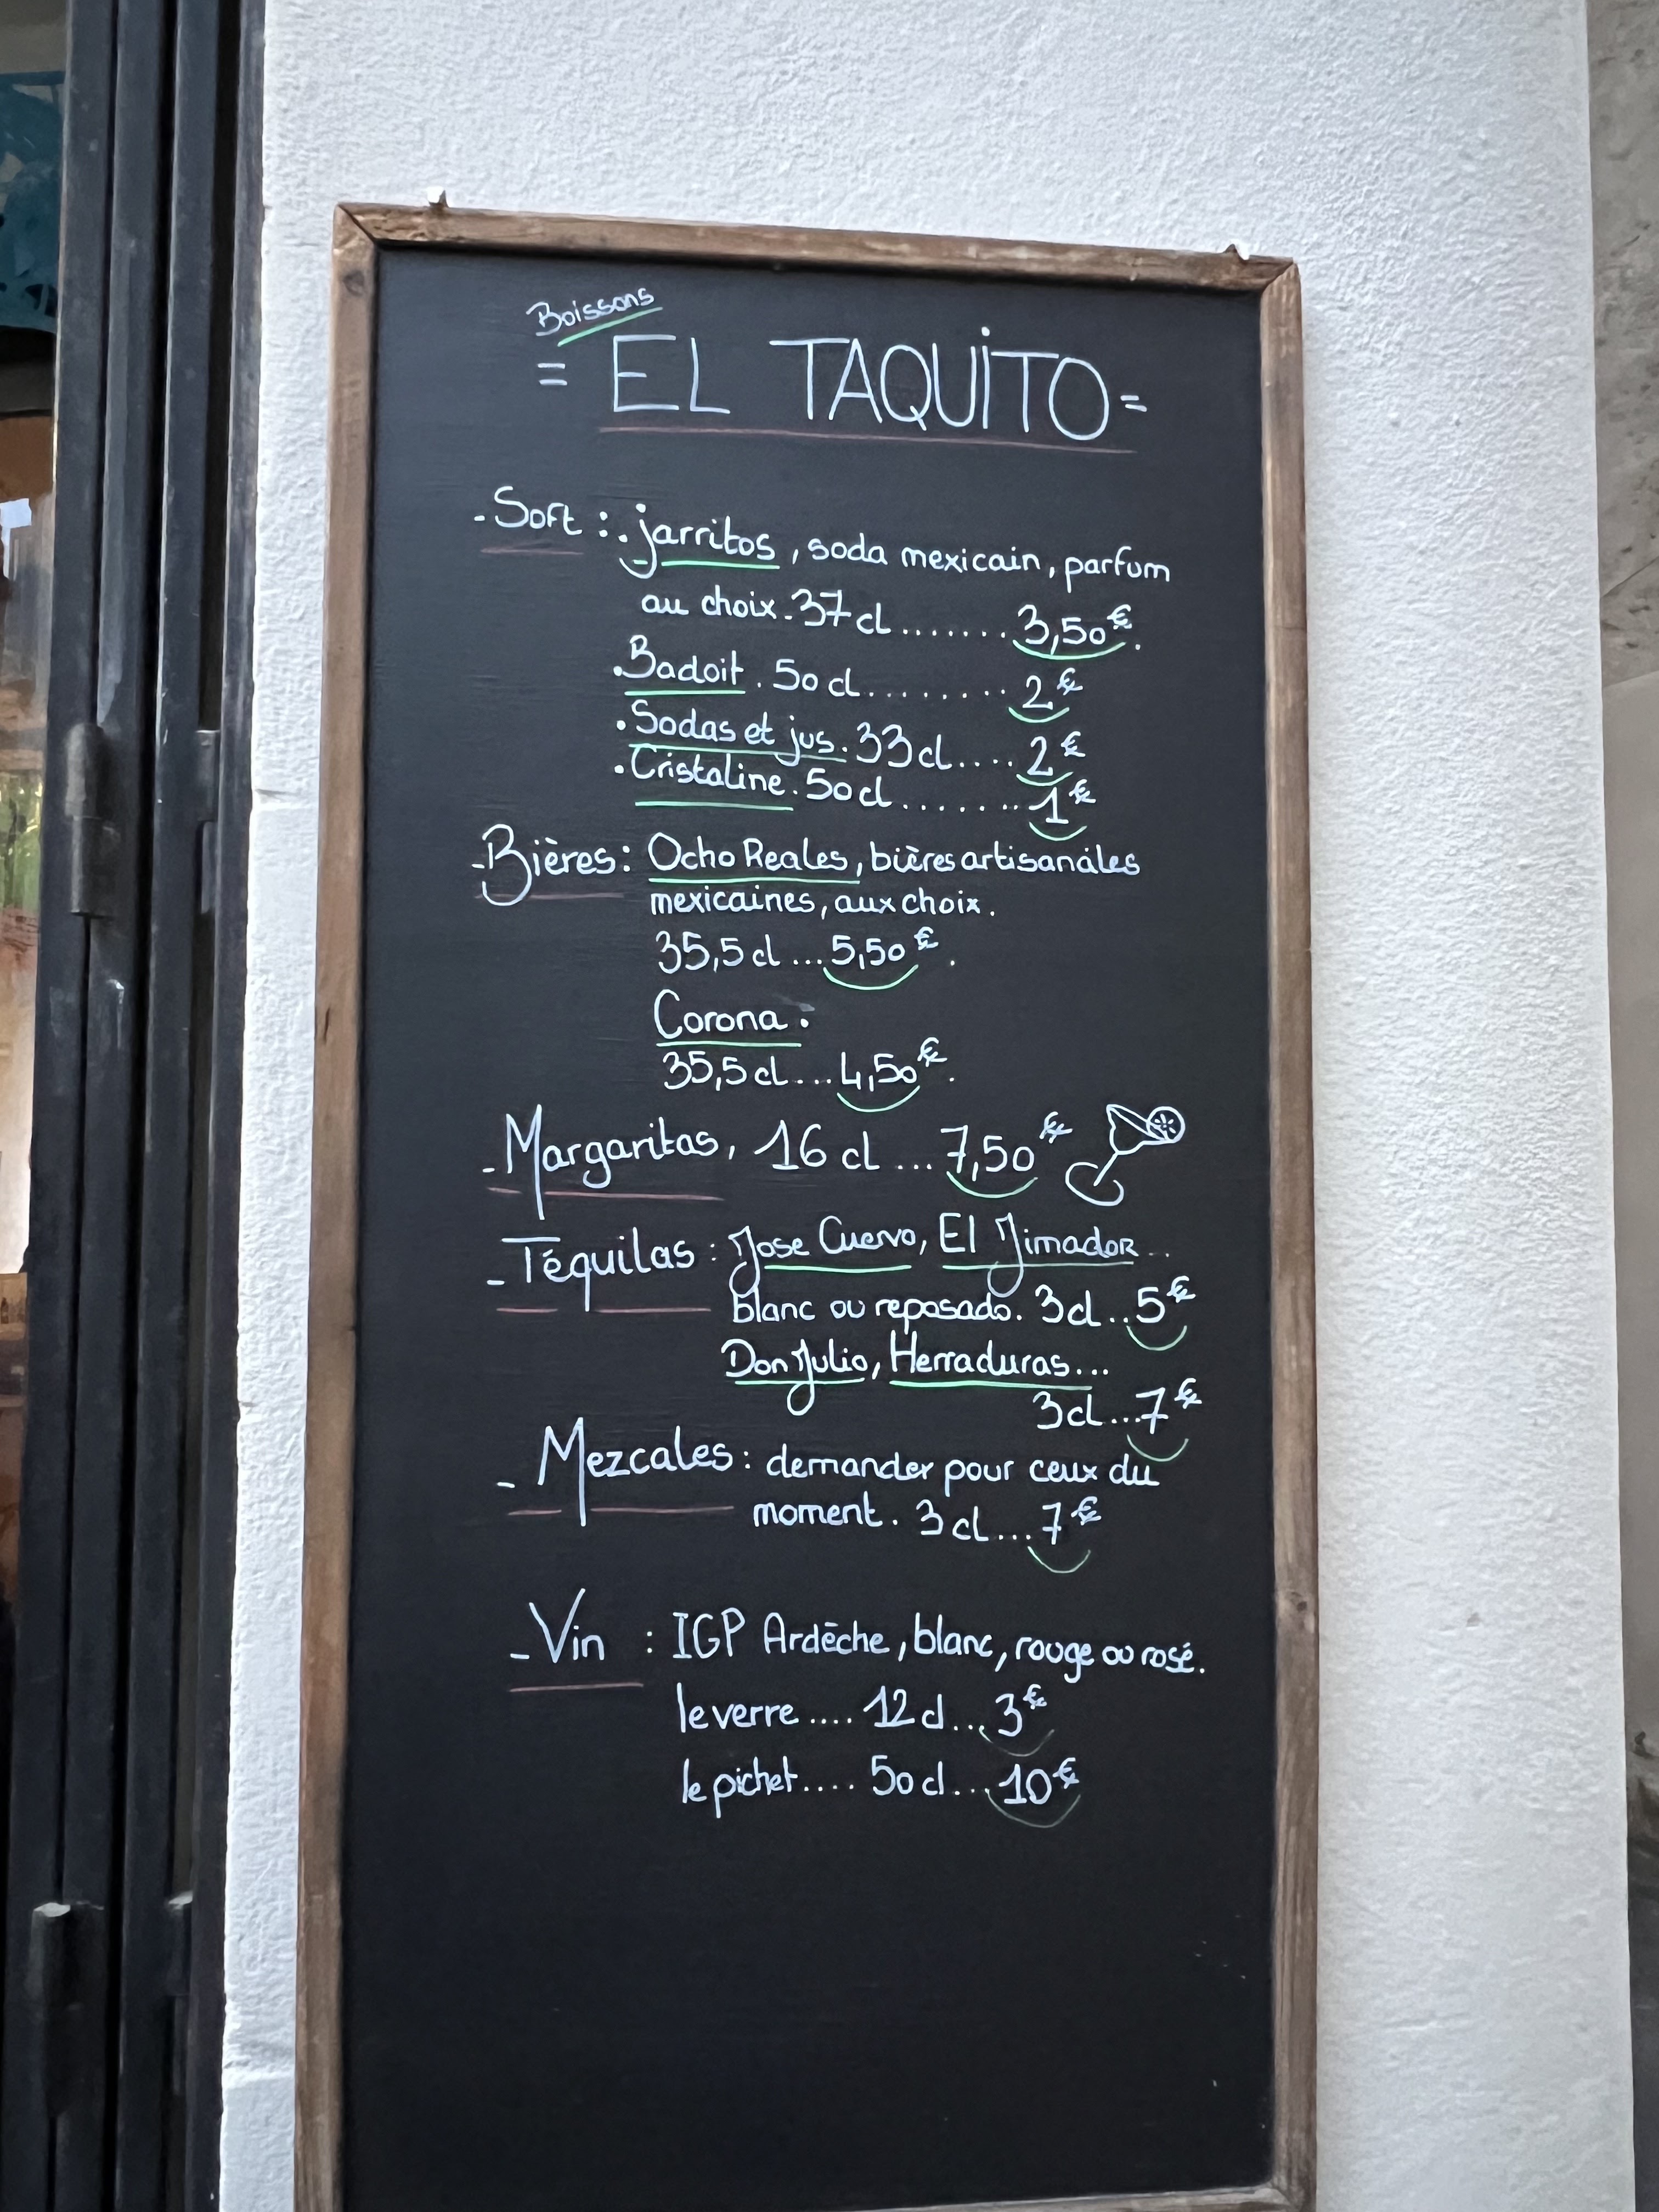 Boissons
= EL TAQUITO =
- Soft : . jarritos, soda mexicain, parfum
au choix. 37 cl ....... 3,50€.
. Badoit. 50 cl ........ 2€
. Sodas et jus. 33 cl .... 2€
. Cristaline. 50 cl ....... 1€
- Bières : Ocho Reales, bières artisanales
mexicaines, aux choix.
35,5 cl ... 5,50€.
Corona.
35,5 cl ... 4,50€.
- Margaritas, 16 cl ... 7,50€
- Téquilas : Jose Cuervo, El Jimador...
blanc ou reposado. 3 cl .. 5€
Don Julio, Herraduras...
3 cl ... 7€
- Mezcales : demander pour ceux du
moment. 3 cl ... 7€
- Vin : IGP Ardèche, blanc, rouge ou rosé.
le verre .... 12 cl ... 3€
le pichet .... 50 cl ... 10€